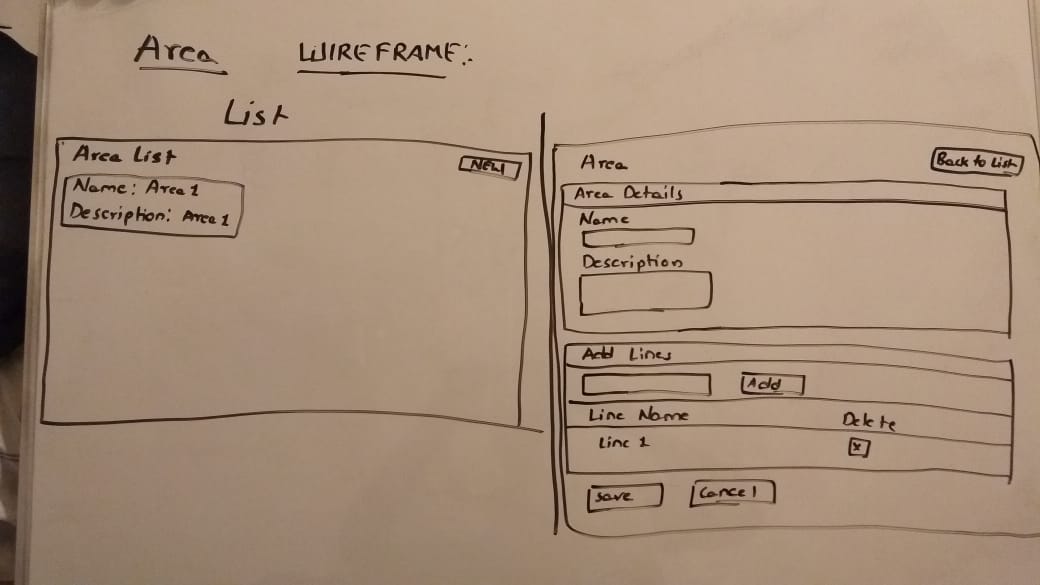 Area WIREFRAME:
List
Area List
NEW
Name: Area 1
Description: Area 1
Area
Back to List
Area Details
Name
Description
Add Lines
Add
Line Name Delete
Line 1 x
Save Cancel